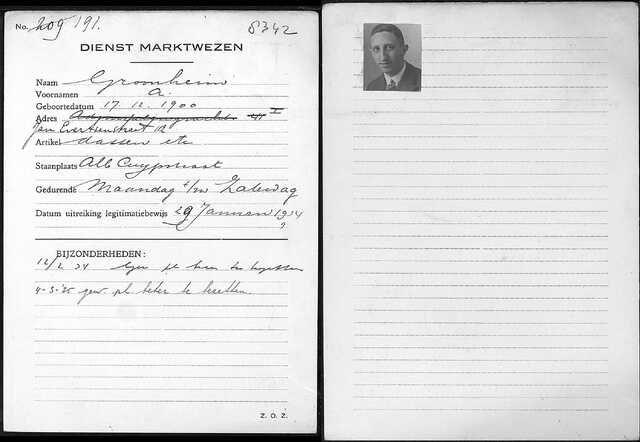 No. 209 191. 8342
DIENST MARKTWEZEN
Naam Gromheim
Voornamen A.
Geboortedatum 17.12.1900
Adres II
Jan Evertsenstraat 12
Artikel dassen etc
Staanplaats Alb Cuypstraat
Gedurende Maandag t/m Zaterdag
Datum uitreiking legitimatiebewijs 29 Januari 1934
BIJZONDERHEDEN:
12/2 34 pl
4-3-35 gew. pl beter te bezetten.
Z. O. Z.